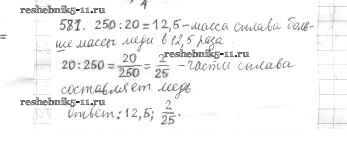 581. 250 : 20 = 12,5 – масса сплава боль-
ше массы меди в 12,5 раза
20 : 250 = 20/250 = 2/25 – части сплава
составляет медь
ответ: 12,5; 2/25.
reshebnik5-11.ru
reshebnik5-11.ru
reshebnik5-11.ru
reshebnik5-11.ru